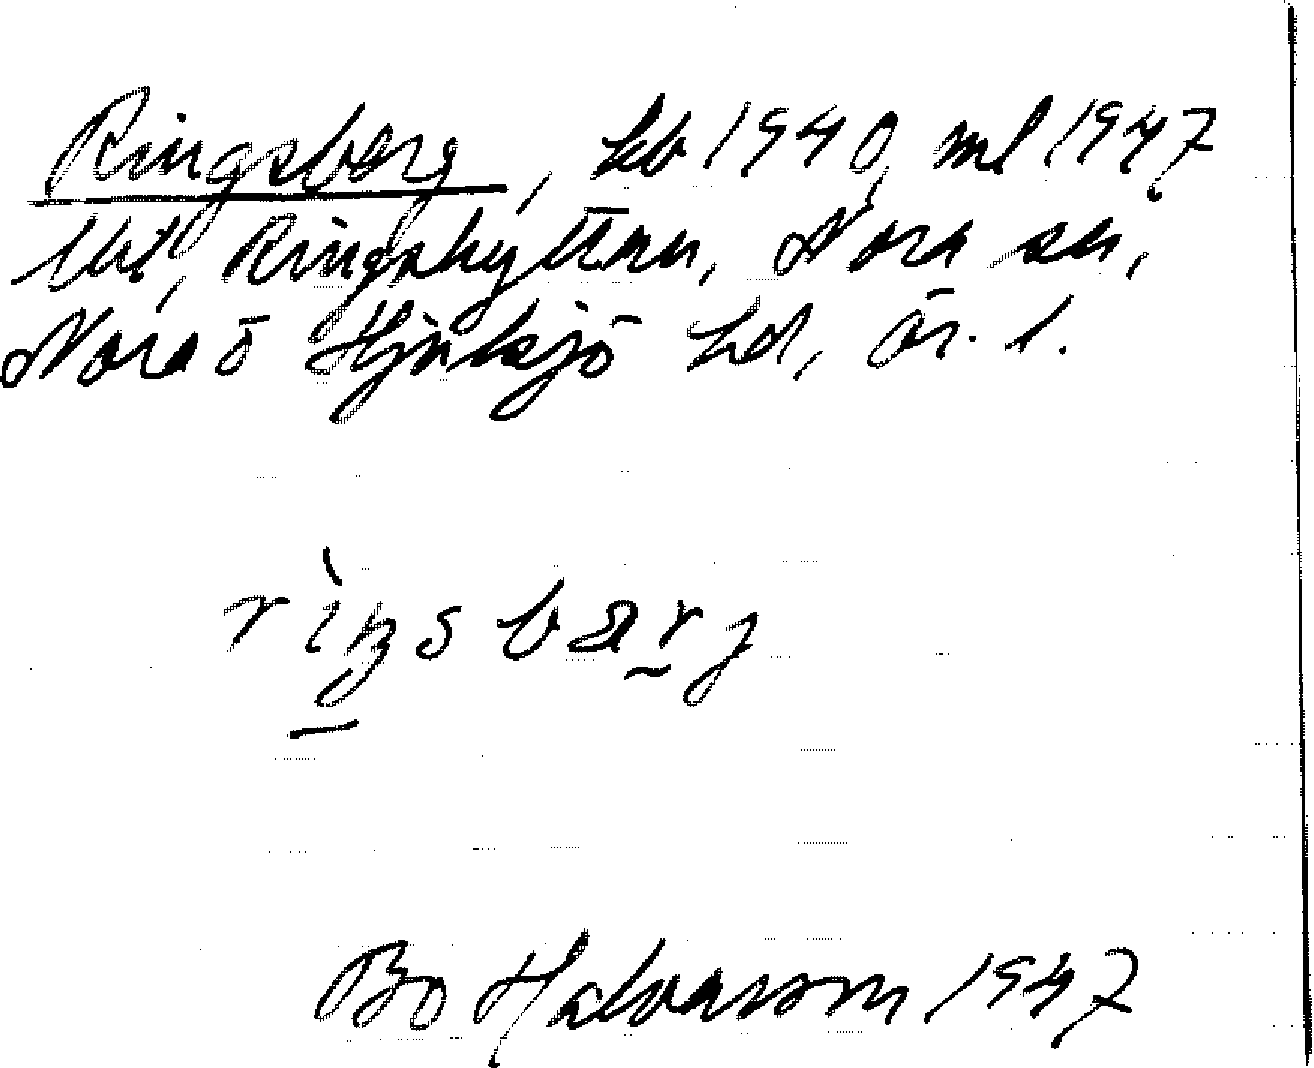 Ringsberg, kb 1940, ml 1947
Utj, Ringshyttan, Nora sn,
Nora o Hjulsjö hd, Ör. l.
rìŋsbærj
Bo Halvarson 1947